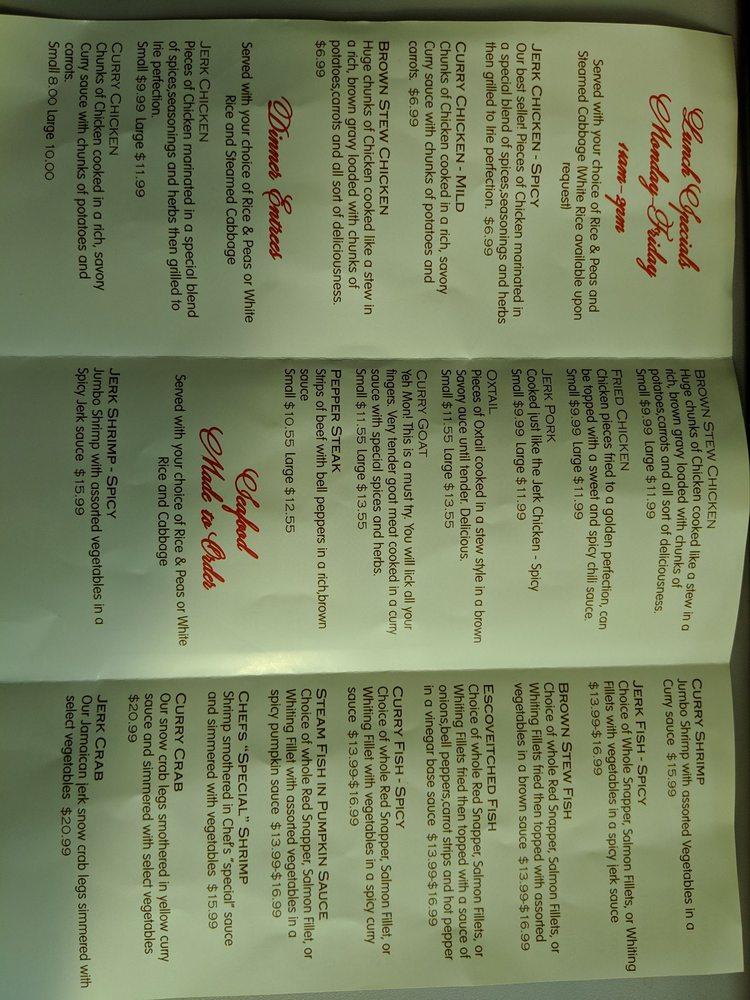 Lunch Specials
Monday-Friday
11am-2pm
Served with your choice of Rice & Peas and
Steamed Cabbage (White Rice available upon
request)
JERK CHICKEN - SPICY
Our best seller! Pieces of Chicken marinated in
a special blend of spices,seasonings and herbs
then grilled to Irie perfection. $6.99
CURRY CHICKEN - MILD
Chunks of Chicken cooked in a rich, savory
Curry sauce with chunks of potatoes and
carrots. $6.99
BROWN STEW CHICKEN
Huge chunks of Chicken cooked like a stew in
a rich, brown gravy loaded with chunks of
potatoes,carrots and all sort of deliciousness.
$6.99
Dinner Entrees
Served with your choice of Rice & Peas or White
Rice and Steamed Cabbage
JERK CHICKEN
Pieces of Chicken marinated in a special blend
of spices,seasonings and herbs then grilled to
Irie perfection.
Small $9.99 Large $11.99
CURRY CHICKEN
Chunks of Chicken cooked in a rich, savory
Curry sauce with chunks of potatoes and
carrots.
Small 8.00 Large 10.00
BROWN STEW CHICKEN
Huge chunks of Chicken cooked like a stew in a
rich, brown gravy loaded with chunks of
potatoes,carrots and all sort of deliciousness.
Small $9.99 Large $11.99
FRIED CHICKEN
Chicken pieces fried to a golden perfection, can
be topped with a sweet and spicy chili sauce.
Small $9.99 Large $11.99
JERK PORK
Cooked just like the Jerk Chicken - Spicy
Small $9.99 Large $11.99
OXTAIL
Pieces of Oxtail cooked in a stew style in a brown
Savory auce until tender. Delicious.
Small $11.55 Large $13.55
CURRY GOAT
Yeh Mon! This is a must try. You will lick all your
fingers. Very tender goat meat cooked in a curry
sauce with special spices and herbs.
Small $11.55 Large $13.55
PEPPER STEAK
Strips of beef with bell peppers in a rich,brown
sauce
Small $10.55 Large $12.55
Seafood
Made to Order
Served with your choice of Rice & Peas or White
Rice and Cabbage
JERK SHRIMP - SPICY
Jumbo Shrimp with assorted vegetables in a
Spicy Jerk sauce $15.99
CURRY SHRIMP
Jumbo Shrimp with assorted Vegetables in a
Curry sauce $15.99
JERK FISH - SPICY
Choice of Whole Snapper, Salmon Fillets, or Whiting
Fillets with vegetables in a spicy jerk sauce
$13.99-$16.99
BROWN STEW FISH
Choice of whole Red Snapper, Salmon Fillets, or
Whiting Fillets fried then topped with assorted
vegetables in a brown sauce $13.99-$16.99
ESCOVEITCHED FISH
Choice of whole Red Snapper, Salmon Fillets, or
Whiting Fillets fried then topped with a sauce of
onions,bell peppers,carrot strips and hot pepper
in a vinegar base sauce $13.99-$16.99
CURRY FISH - SPICY
Choice of whole Red Snapper, Salmon Fillet, or
Whiting Fillet with vegetables in a spicy curry
sauce $13.99-$16.99
STEAM FISH IN PUMPKIN SAUCE
Choice of whole Red Snapper, Salmon Fillet, or
Whiting Fillet with assorted vegetables in a
spicy pumpkin sauce $13.99-$16.99
CHEF'S "SPECIAL" SHRIMP
Shrimp smothered in Chef's "special" sauce
and simmered with vegetables $15.99
CURRY CRAB
Our snow crab legs smothered in yellow curry
sauce and simmered with select vegetables
$20.99
JERK CRAB
Our Jamaican jerk snow crab legs simmered with
select vegetables $20.99